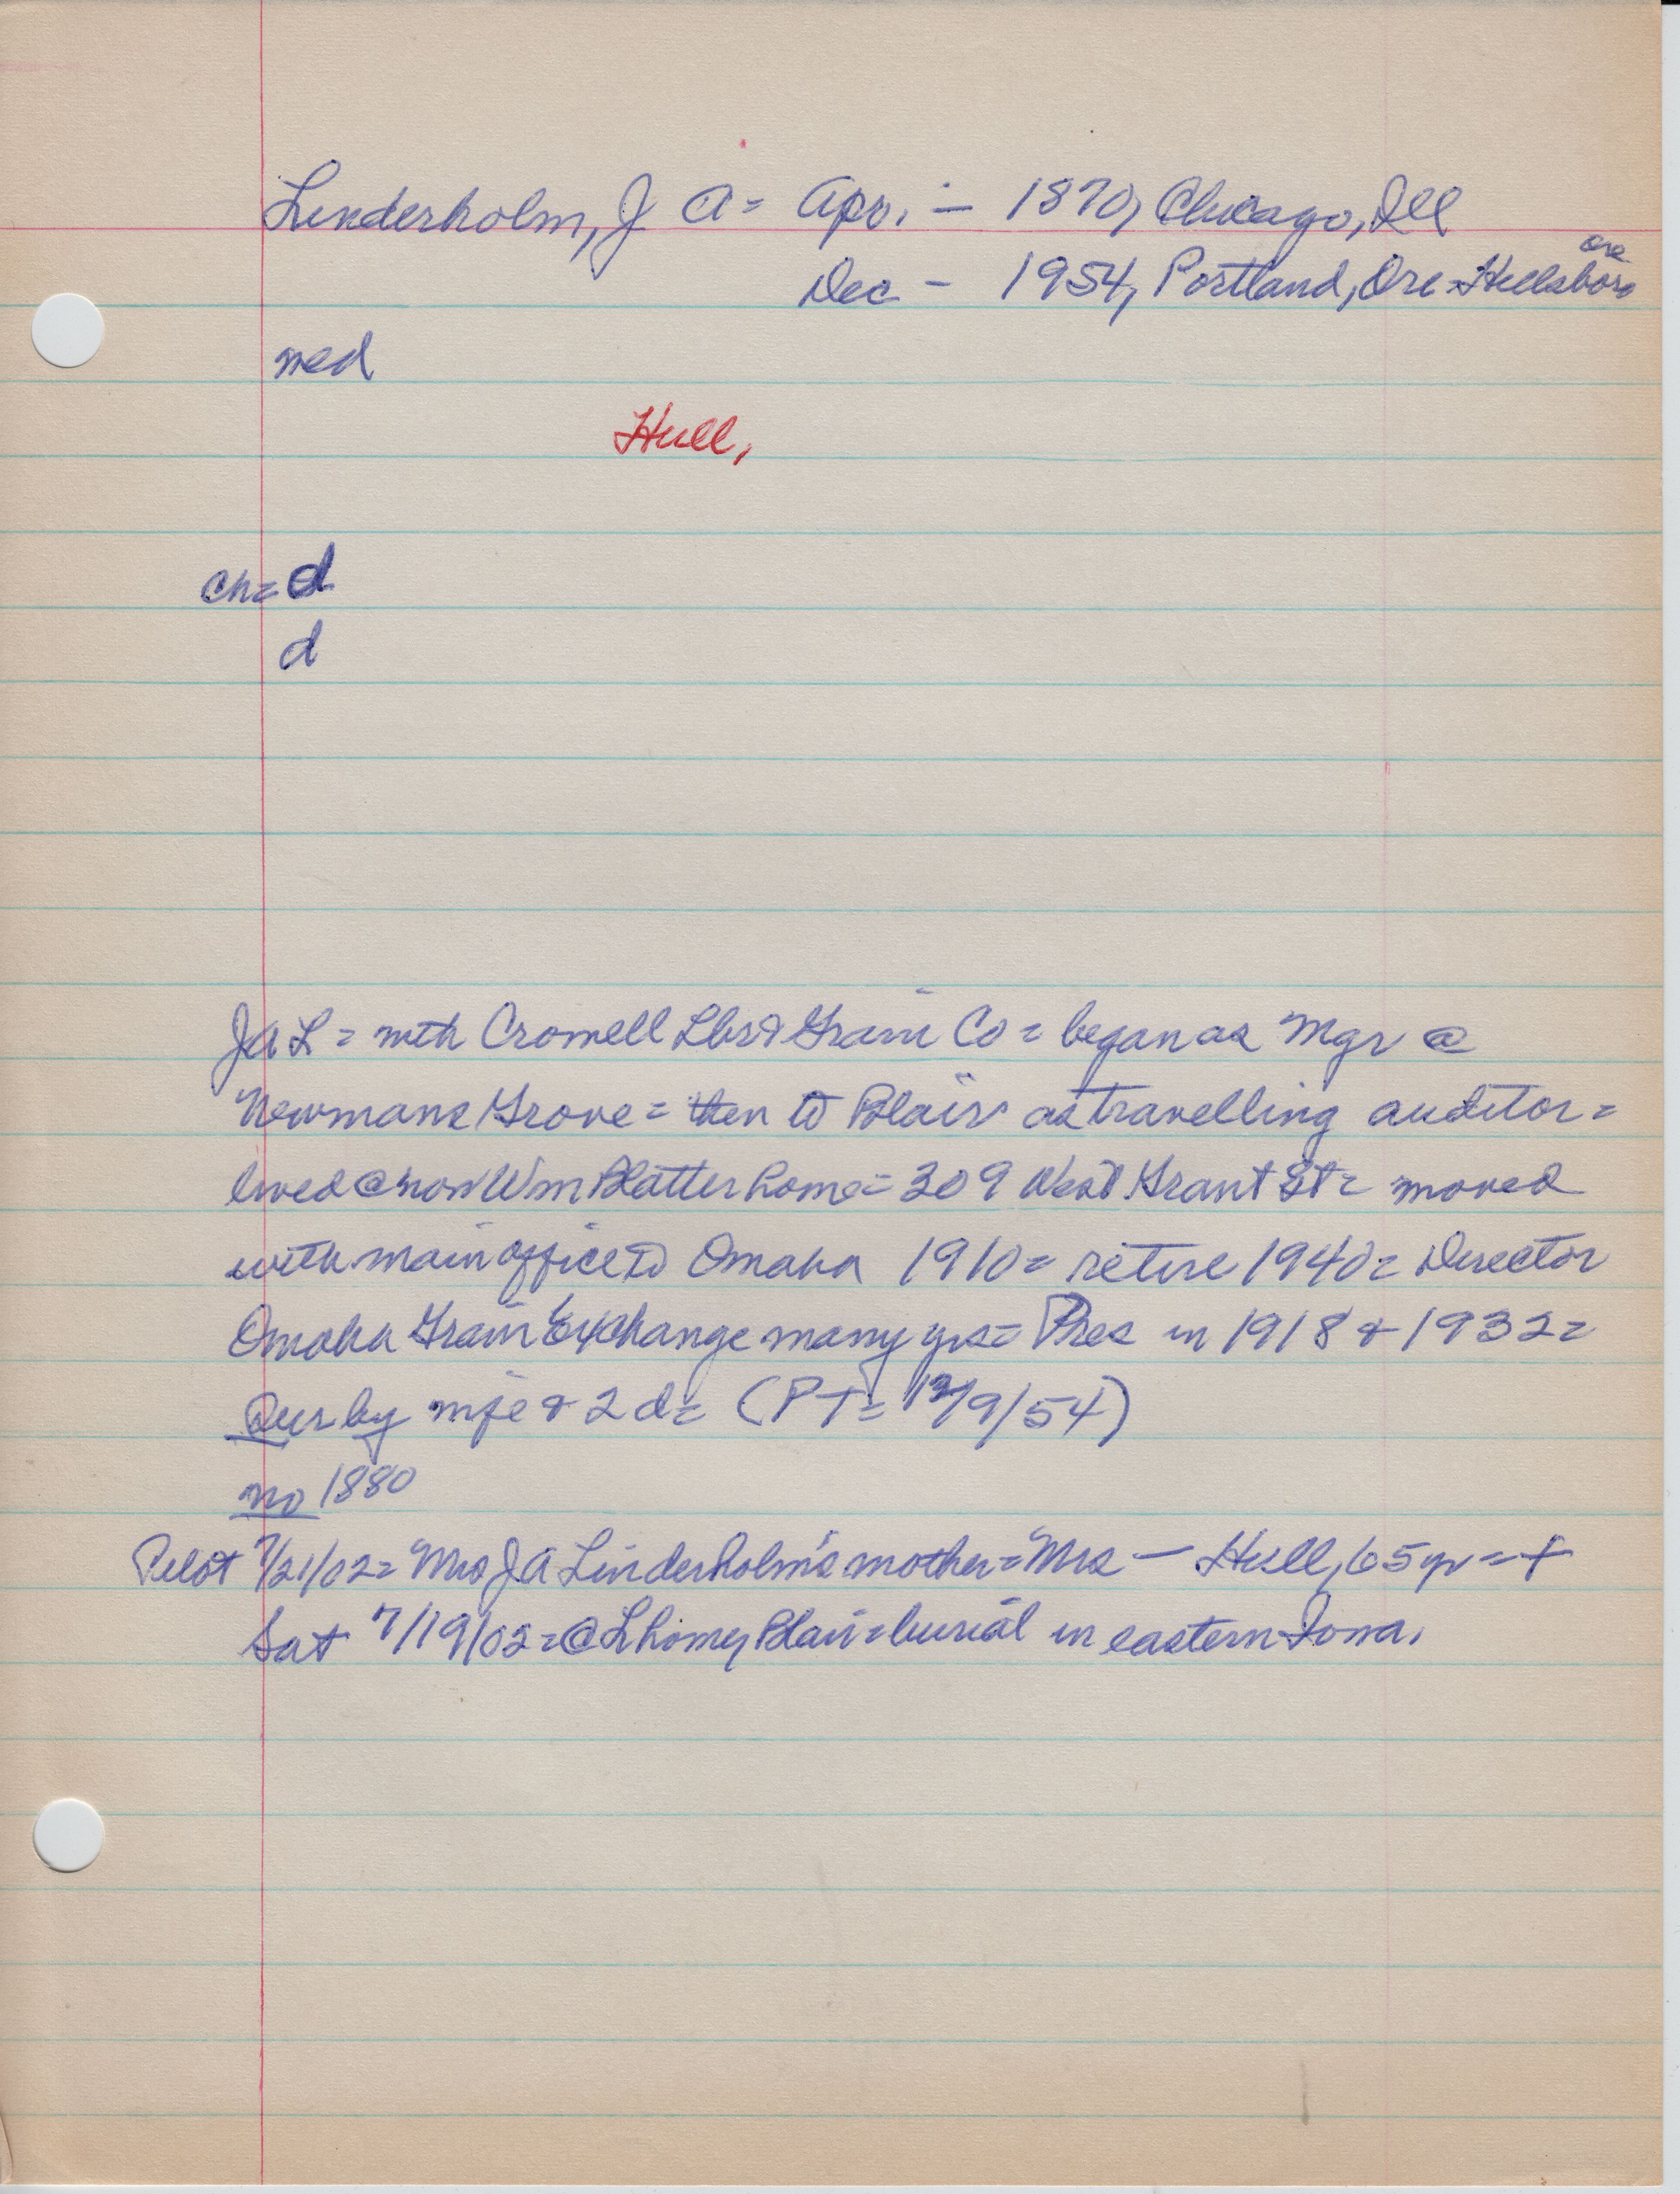 Linderholm, J A = Apr. - 1870, Chicago, Ill
Dec - 1954, Portland, Ore = Hillsboro Ore
med
Hull,
Ch = d
d
JAL = with Crowell Lbr & Grain Co = began as Mgr @
Newmans Grove = then to Blair as travelling auditor =
lived @ now Wm Blatter home = 309 West Grant St = moved
with main office to Omaha 1910 = retire 1940 = Director
Omaha Grain Exchange many yrs = Pres in 1918 & 1932 =
Sur by wife & 2 d = (PT = 12/9/54)
no 1880
Pilot 7/21/02 = Mrs J A Linderholm's mother = Mrs — Hull, 65 yr = +
Sat 7/19/02 = @ L home, Blair = burial in eastern Iowa.